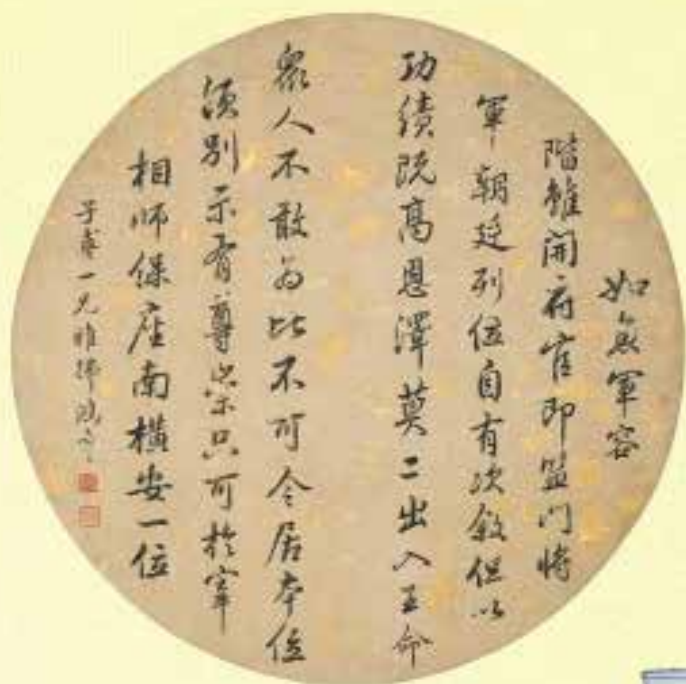 如魚軍容
階雖開府官即監門將
軍朝廷列位自有次叙但以
功績既高恩澤莫二出入王命
眾人不敢為比不可令居本位
須別示有尊崇只可於宰
相師保座南橫安一位
子 一兄雅拂